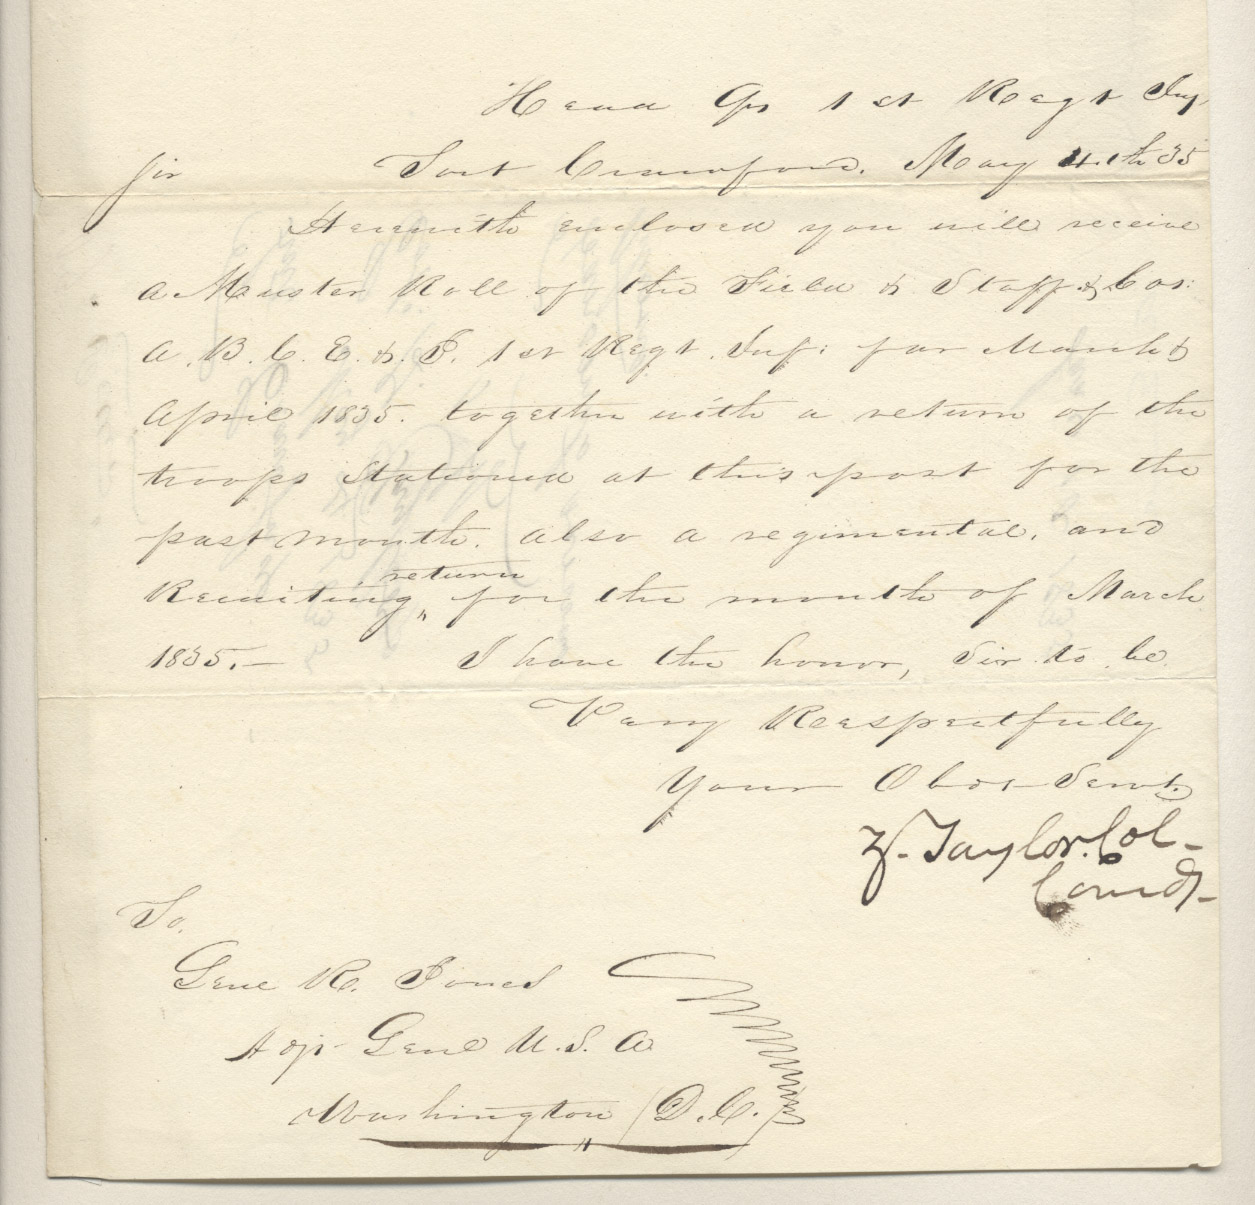 Head Qrs 1st Regt Infy
Sir Fort Crawford. May 4th 35
Herewith enclosed you will receive
a Muster Roll of the Field & Staff & Cos:
A. B. C. E. & I. 1st Regt. Inf: for March &
April 1835. together with a return of the
troops Stationed at this post for the
past month. also a regimental. and
return
Recruiting " for the month of March
1835.— I have the honor, Sir to be
Very Respectfully
Your Obdt Servt.
Z. Taylor. Col-
Comdt-
To.
Genl R. Jones
Adjt Genl U. S. A
Washington (D. C.)
"